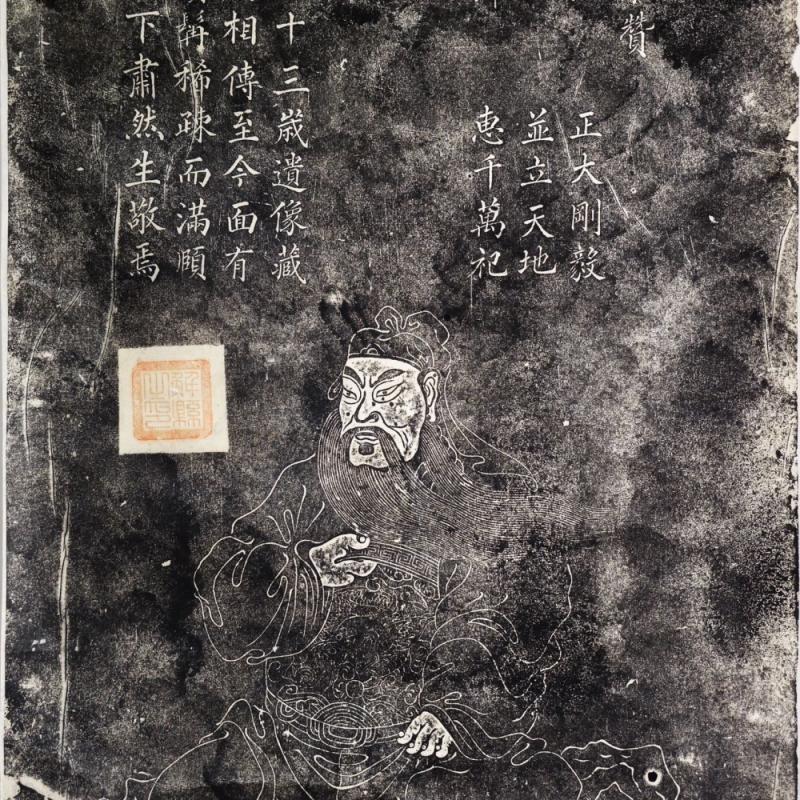 贊
正大剛毅
並立天地
惠千萬祀
十三歲遺像藏
相傳至今面有
髯稀疎而滿頤
下肅然生敬焉
解縣之印